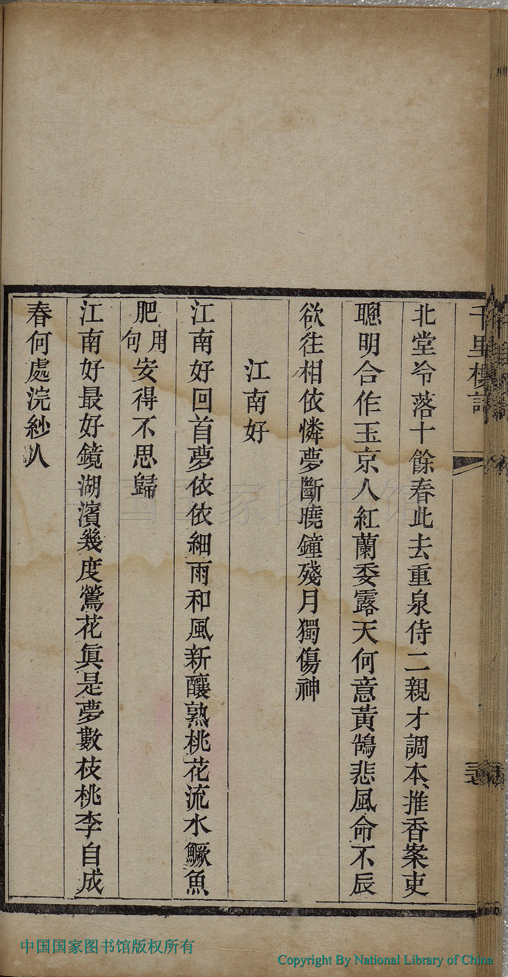 北堂冷落十餘春此去重泉侍二親才調本推香案吏
聰明合作玉京人紅蘭委露天何意黃鵠悲風命不辰
欲往相依憐夢斷曉鐘殘月獨傷神
江南好
江南好回首夢依依細雨和風新釀熟桃花流水鱖魚
肥用句安得不思歸
江南好最好鏡湖濱幾度鶯花眞是夢數枝桃李自成
春何處浣紗人
中国国家图书馆版权所有
Copyright By National Library of China